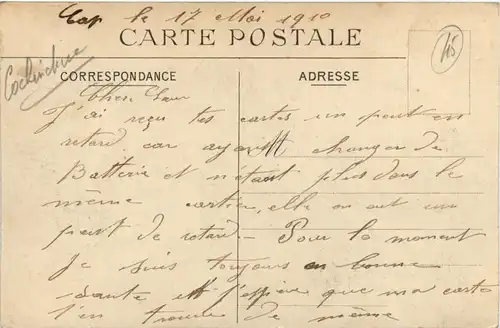 Cap le 17 Mai 1910
CARTE POSTALE
45
Cochinchine
CORRESPONDANCE
ADRESSE
Cher
J'ai reçu tes cartes un peut en
retard car ayant changer de
Batterie et n'étant plus dans le
même cartier, elle on eut un
peut de retard - Pour le moment
je suis toujours en bonne
sante et j'espère que ma carte
t'en trouve de même